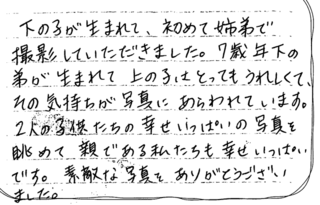 下の子が生まれて、初めて姉弟で
撮影していただきました。7歳年下の
弟が生まれて上の子はとってもうれしくて、
その気持ちが写真にあらわれています。
2人の子供たちの幸せいっぱいの写真を
眺めて親である私たちも幸せいっぱい
です。素敵な写真をありがとうござい
ました。